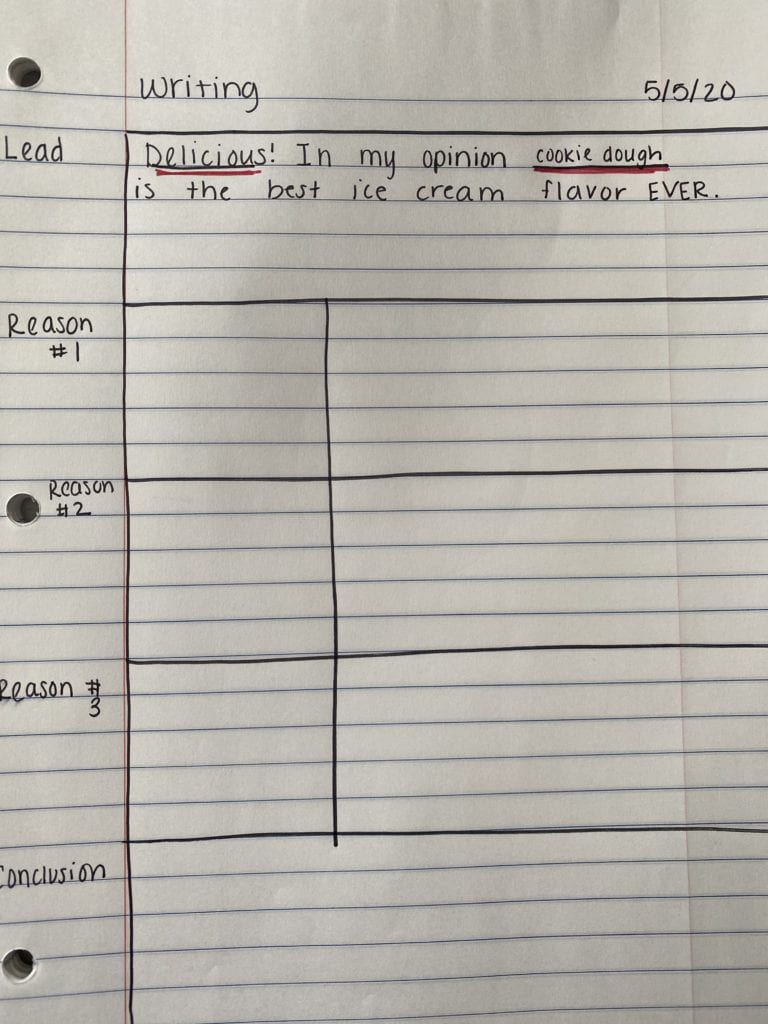 Writing 5/5/20
Lead
Delicious! In my opinion cookie dough
is the best ice cream flavor EVER.
Reason
#1
Reason
#2
Reason #
3
Conclusion